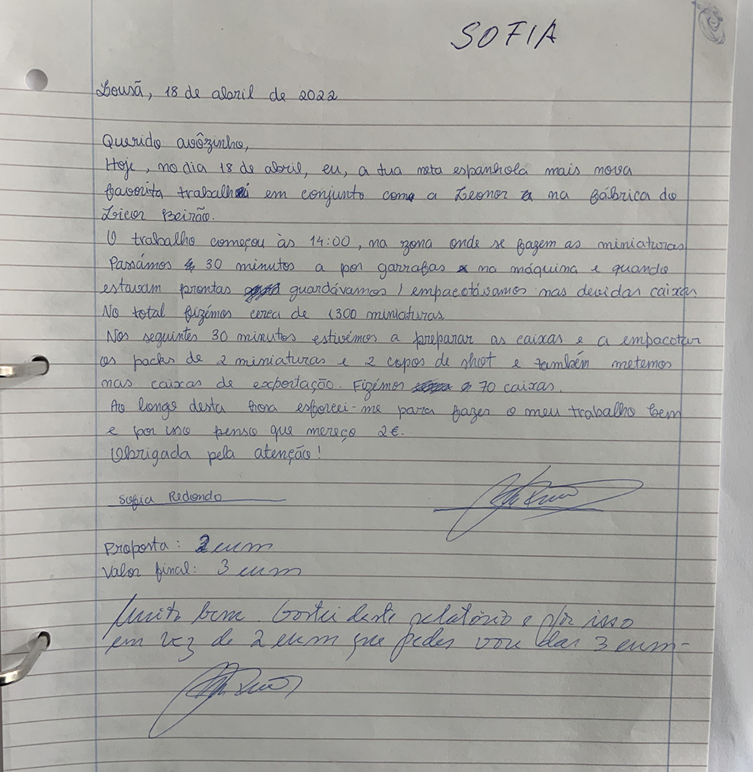 SOFIA
Lousã, 18 de abril de 2022
Querido avôzinho,
Hoje, no dia 18 de abril, eu, a tua neta espanhola mais nova
favorita trabalhei em conjunto com a Leonor na fábrica do
Licor Beirão.
O trabalho começou às 14:00, na zona onde se fazem as miniaturas
Passámos 30 minutos a por garrafas na máquina e quando
estavam prontas guardávamos / empacotávamos nas devidas caixas
No total fizémos cerca de 1300 miniaturas
Nos seguintes 30 minutos estivémos a preparar as caixas e a empacotar
os packs de 2 miniaturas e 2 copos de shot e também metemos
nas caixas de exportação. Fizémos 70 caixas.
Ao longo desta hora esforcei-me para fazer o meu trabalho bem
e por isso penso que mereço 2€.
Obrigada pela atenção!
Sofia Redondo
Proposta: 2 eum
Valor final: 3 eum
Muito bem. Gostei deste relatório e por isso
em vez de 2 eum que pedes vou dar 3 eum